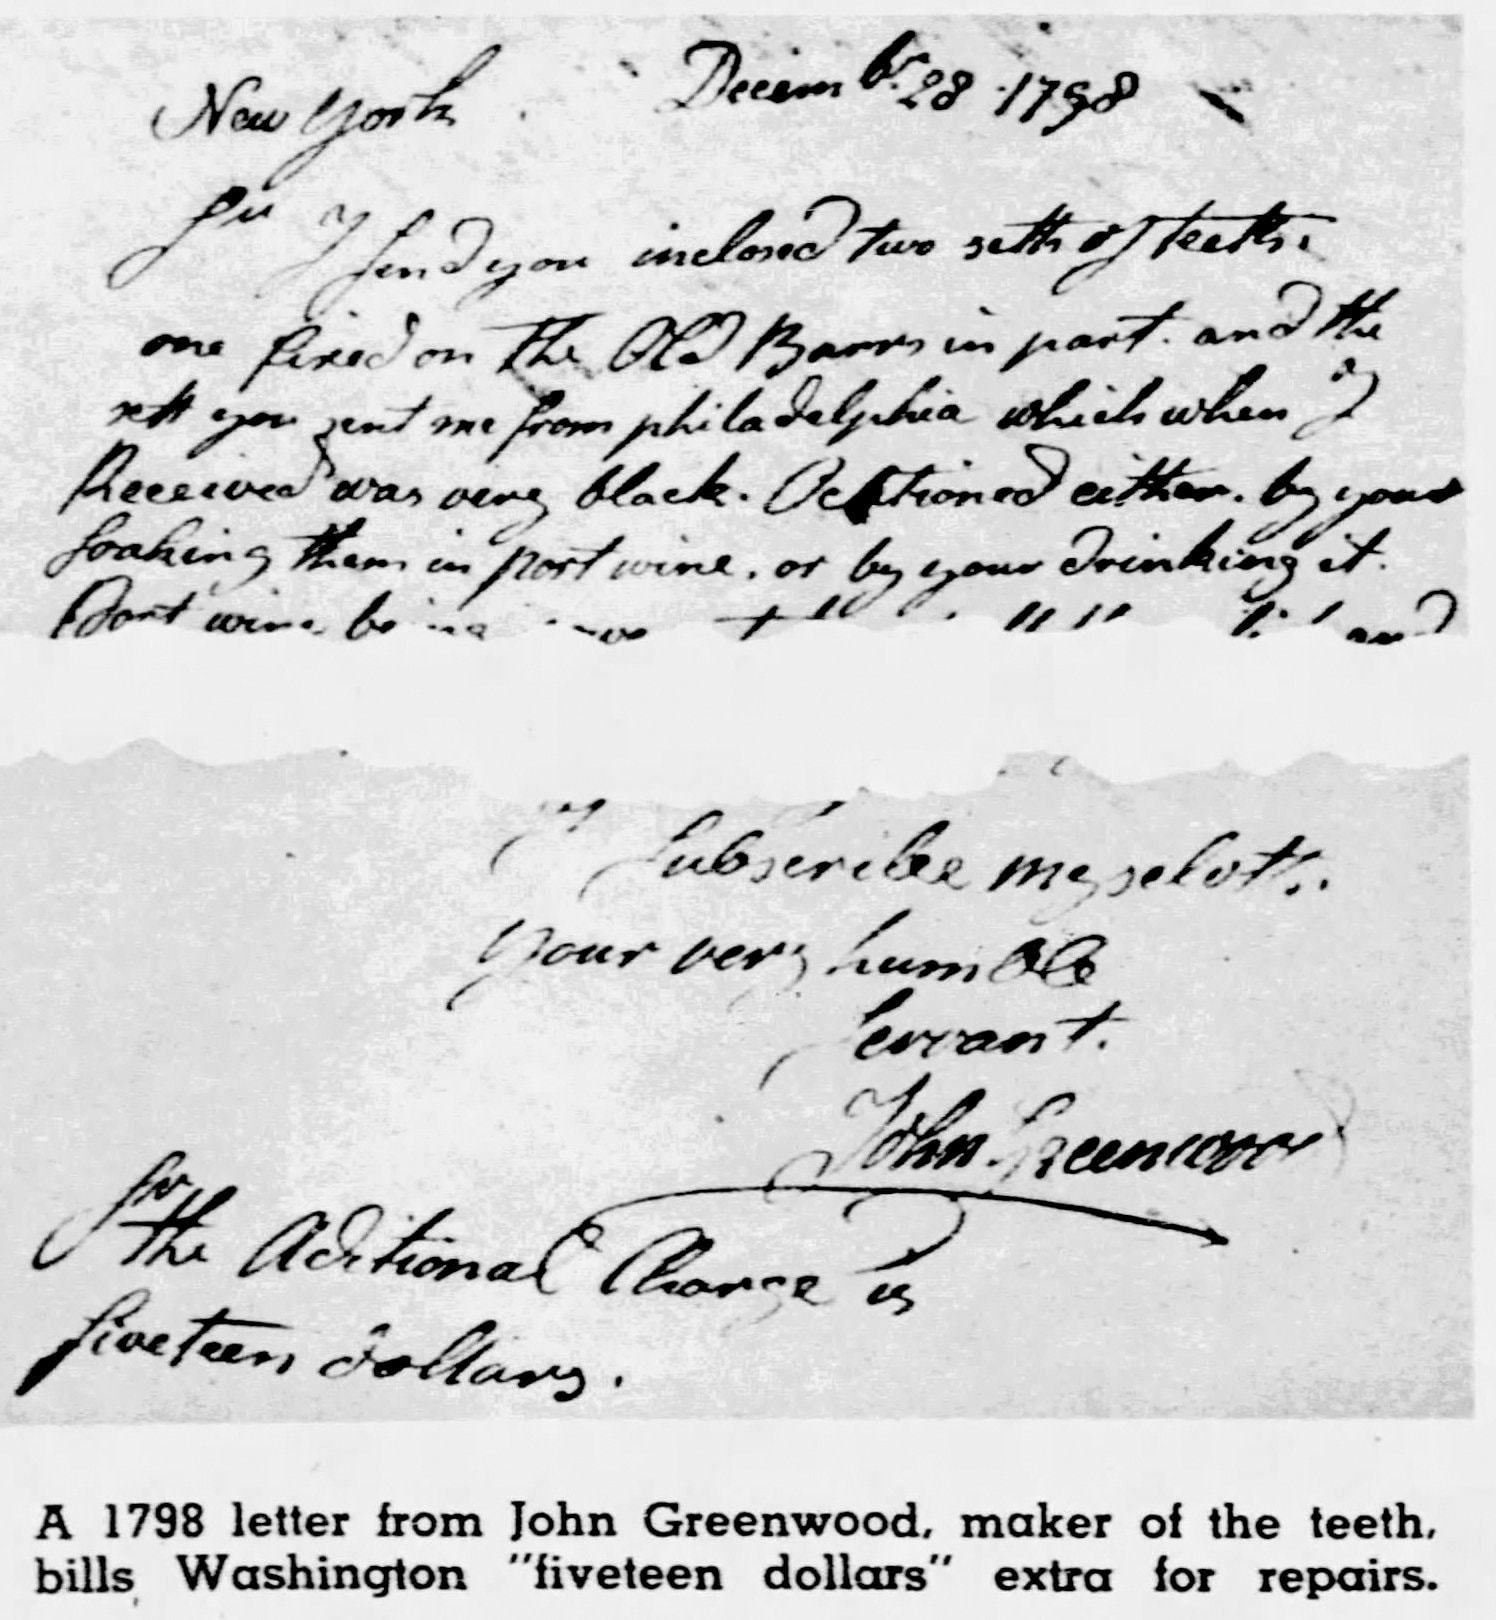 New York Decembr. 28 1798
Sir I send you inclosed two setts of teeth.
one fixed on the Old Barrs in part. and the
sett you sent me from philadelphia which when I
Received was very black. Ocationed either. by your
soaking them in port wine. or by your drinking it.
Port wine being and
I Subscribe myselvth.
your very humble
Servant.
John Greenwood
Sir
the Aditional Charge is
fiveteen dollars.
A 1798 letter from John Greenwood, maker of the teeth,
bills Washington "fiveteen dollars" extra for repairs.